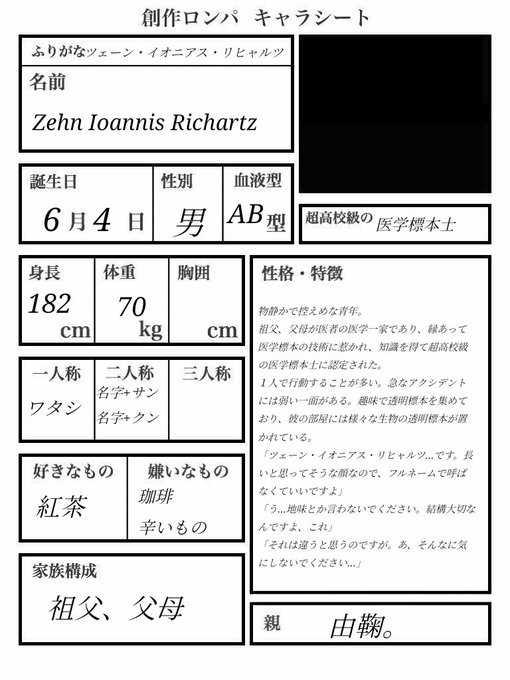 創作ロンパ キャラシート
ふりがな ツェーン・イオニアス・リヒャルツ
名前
Zehn Ioannis Richartz
誕生日
6月4日
性別
男
血液型
AB型
超高校級の 医学標本士
身長
182
cm
体重
70
kg
胸囲
cm
一人称
ワタシ
二人称
名字+サン
名字+クン
三人称
好きなもの
紅茶
嫌いなもの
珈琲
辛いもの
家族構成
祖父、父母
性格・特徴
物静かで控えめな青年。
祖父、父母が医者の医学一家であり、縁あって
医学標本の技術に惹かれ、知識を得て超高校級
の医学標本士に認定された。
1人で行動することが多い。急なアクシデント
には弱い一面がある。趣味で透明標本を集めて
おり、彼の部屋には様々な生物の透明標本が置
かれている。
「ツェーン・イオニアス・リヒャルツ...です。長
いと思ってそうな顔なので、フルネームで呼ば
なくていいですよ」
「う...地味とか言わないでください。結構大切な
んですよ、これ」
「それは違うと思うのですが。あ、そんなに気
にしないでください...」
親
由鞠。